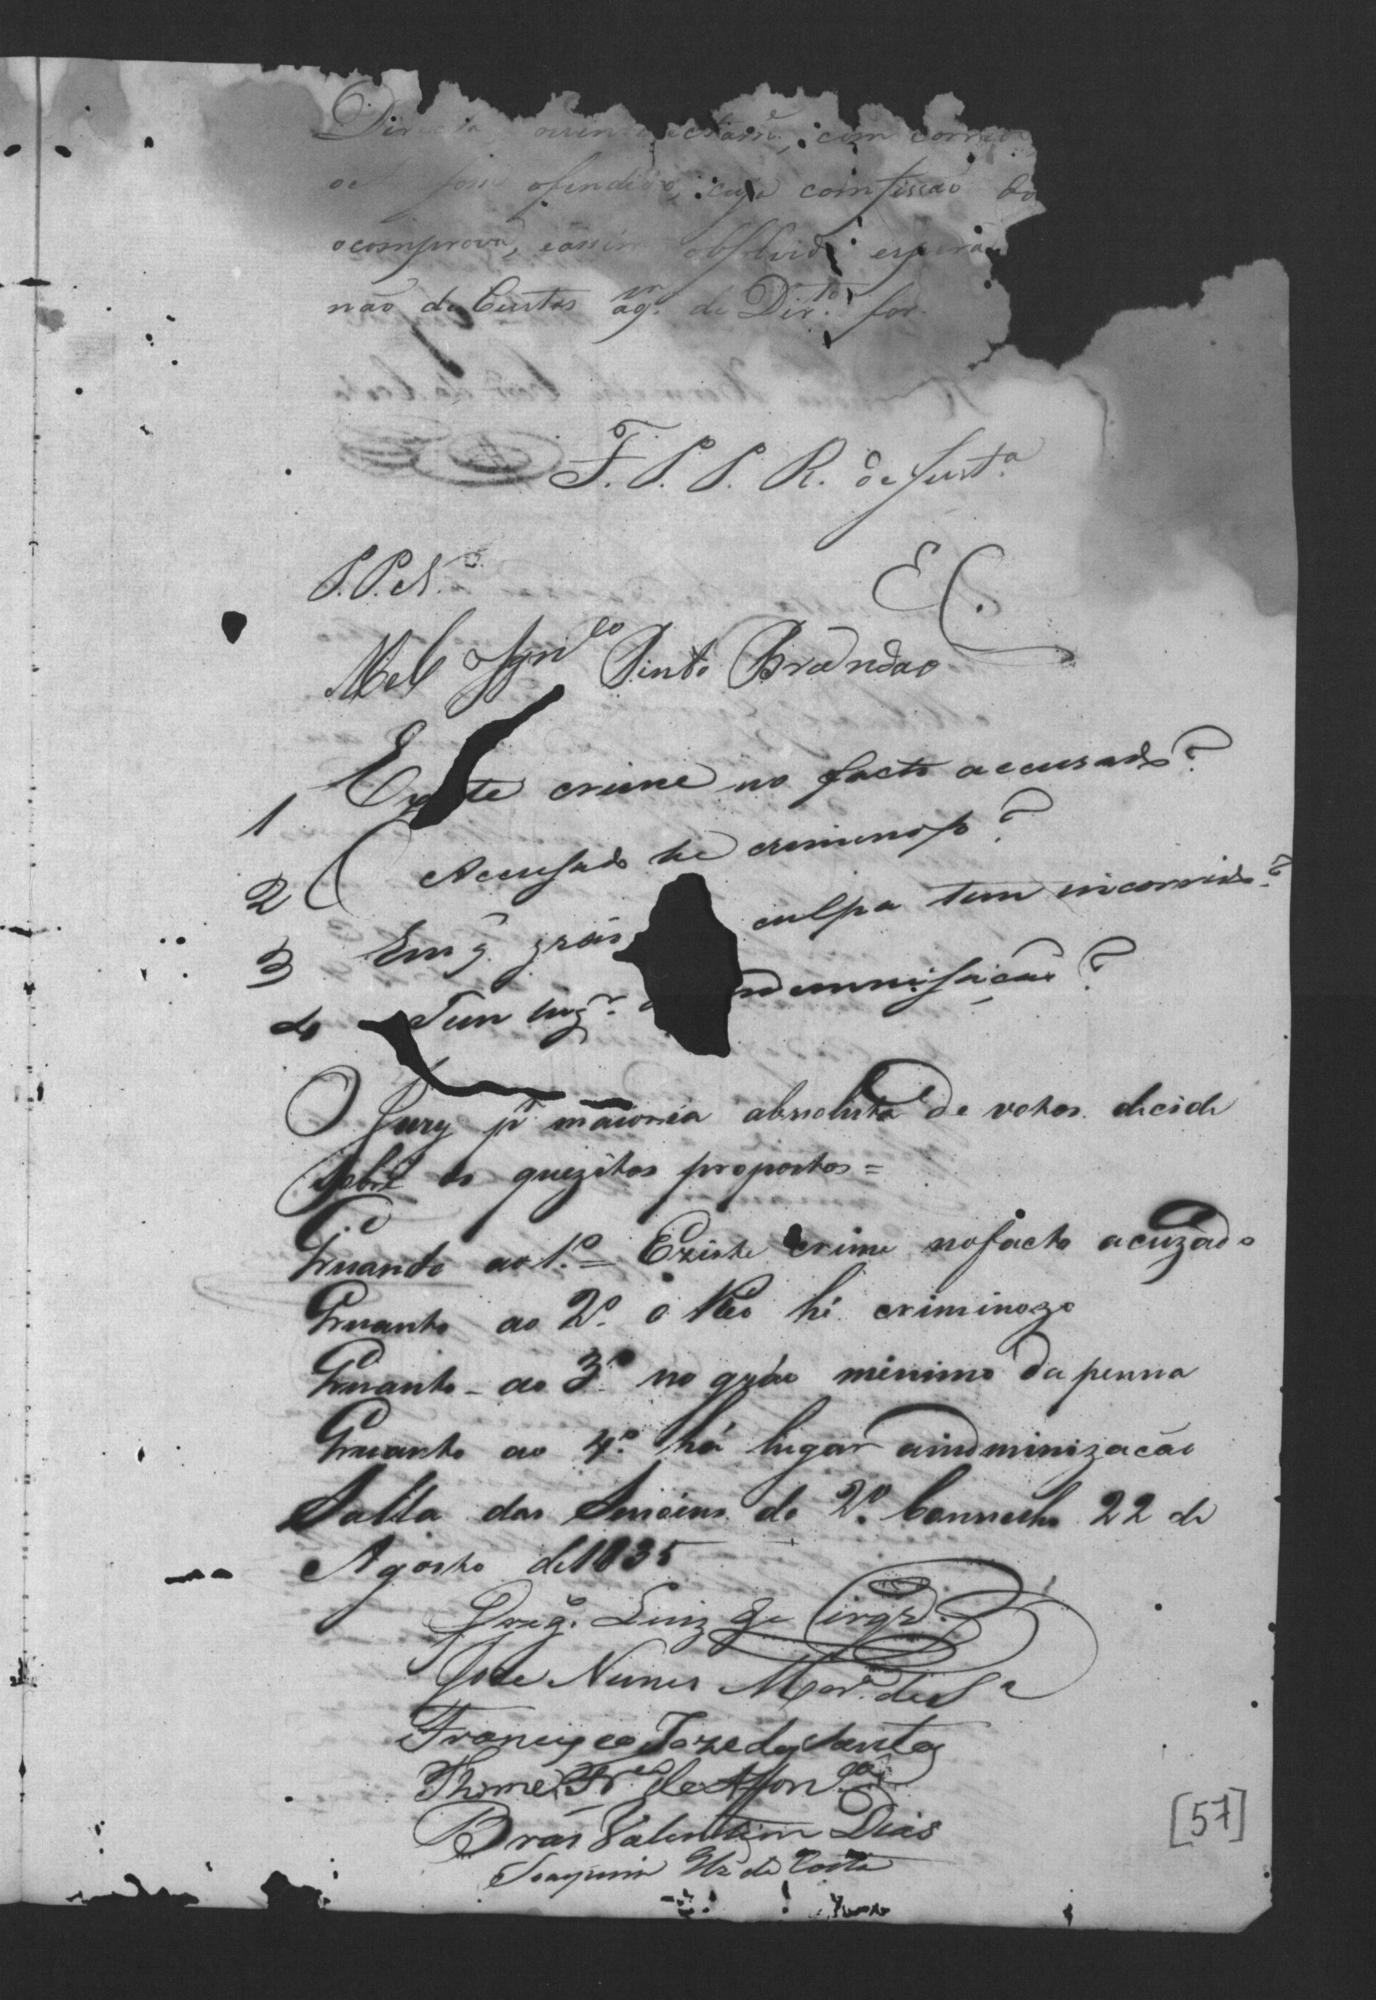 ofendido, cuja comfissaõ do
ocomprova, eassim absolvido espera
naõ de Custas aq.m de Dir.to for.
F. P. P. R. de Just.a
P. P. e N.
E C.
Mel Ign.co Pinto Brandaõ
1 Existe crime no facto accusado?
2 O Accusado he criminoso?
3 Em q. gráo culpa tem incorrido?
4 Tem lug.r indemnisaçaõ?
O Jury pr maioria absoluta de votos decide
sobre os quezitos propostos =
Quanto ao 1.o = Existe crime nofacto acuzado
Quanto ao 2.o o Reo hé criminozo
Quanto - ao 3.o no gráo menimo da penna
Quanto ao 4.o há lugar aindminizacão
Salla das Sessões do 2.o Conselho 22 de
Agosto de 1835
Luiz
Joze Nunes
Francisco Joze dos Santos
Thome
Brás Valentim Dias
Joaquim da Costa
[57]